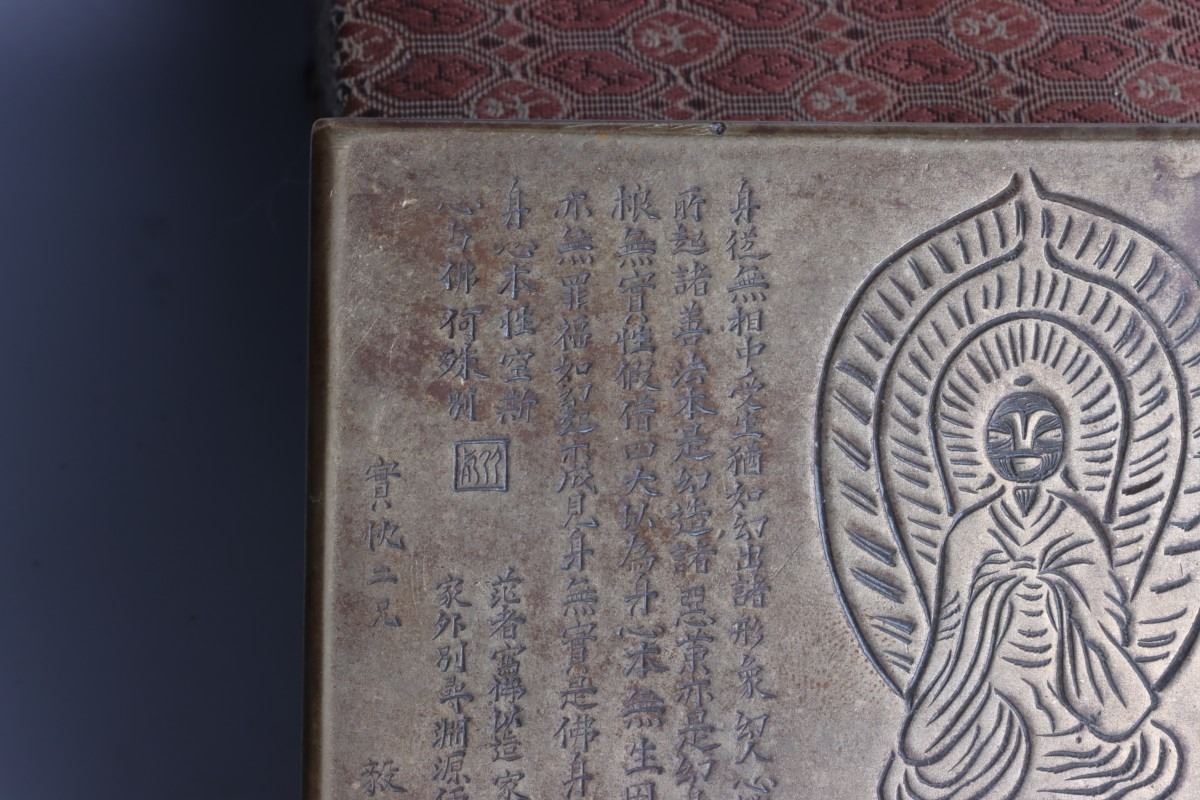 身從無相中受生猶如幻出諸形象幻人心
所起諸善法本是幻造諸惡業亦是幻
根無實性假借四大以為身心本無生因
亦無罪福如幻起亦滅見身無實是佛身
身心本性空斯
心与佛何殊別
范者寫佛以造家
家外別尋淵源
實忱二兄
毅